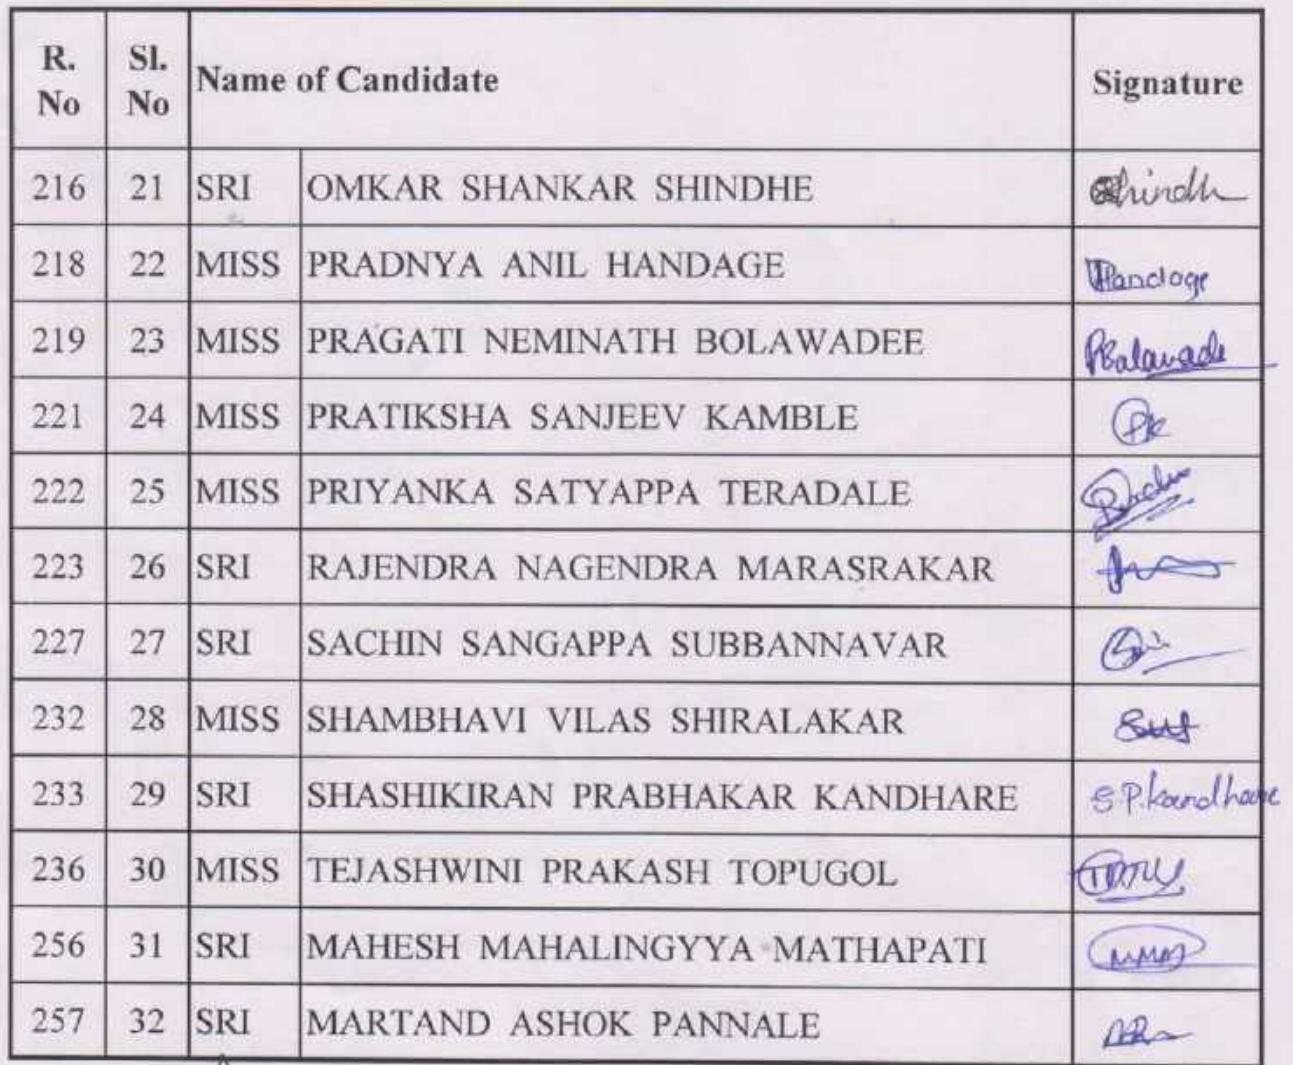 R. No Sl. No Name of Candidate Signature
216 21 SRI OMKAR SHANKAR SHINDHE Shindh
218 22 MISS PRADNYA ANIL HANDAGE Handage
219 23 MISS PRAGATI NEMINATH BOLAWADEE PBalawade
221 24 MISS PRATIKSHA SANJEEV KAMBLE PK
222 25 MISS PRIYANKA SATYAPPA TERADALE
223 26 SRI RAJENDRA NAGENDRA MARASRAKAR
227 27 SRI SACHIN SANGAPPA SUBBANNAVAR
232 28 MISS SHAMBHAVI VILAS SHIRALAKAR
233 29 SRI SHASHIKIRAN PRABHAKAR KANDHARE S.P.kandhare
236 30 MISS TEJASHWINI PRAKASH TOPUGOL
256 31 SRI MAHESH MAHALINGYYA MATHAPATI
257 32 SRI MARTAND ASHOK PANNALE